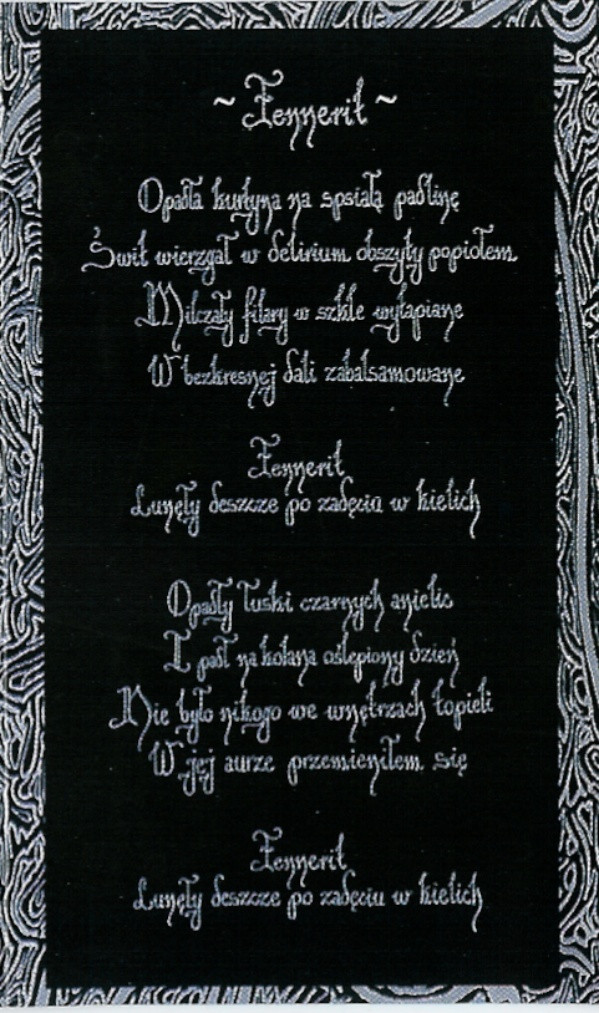 ~ Fennerit ~
Opadła kurtyna na spsiałą padlinę
Świt wierzgał w delirium obszyty popiołem
Milczały filary w szkle wyłapiane
W bezkresnej dali zabalsamowane
Fennerit
Lunęły deszcze po zadęciu w kielich
Opadły łuski czarnych anielic
I padł na kolana oślepiony dzień
Nie było nikogo we wnętrzach topieli
W jej aurze przemieniłem się
Fennerit
Lunęły deszcze po zadęciu w kielich